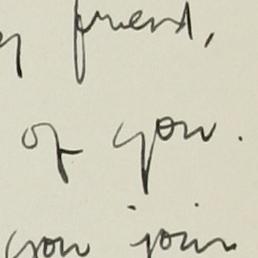 friend,
of you.
you join